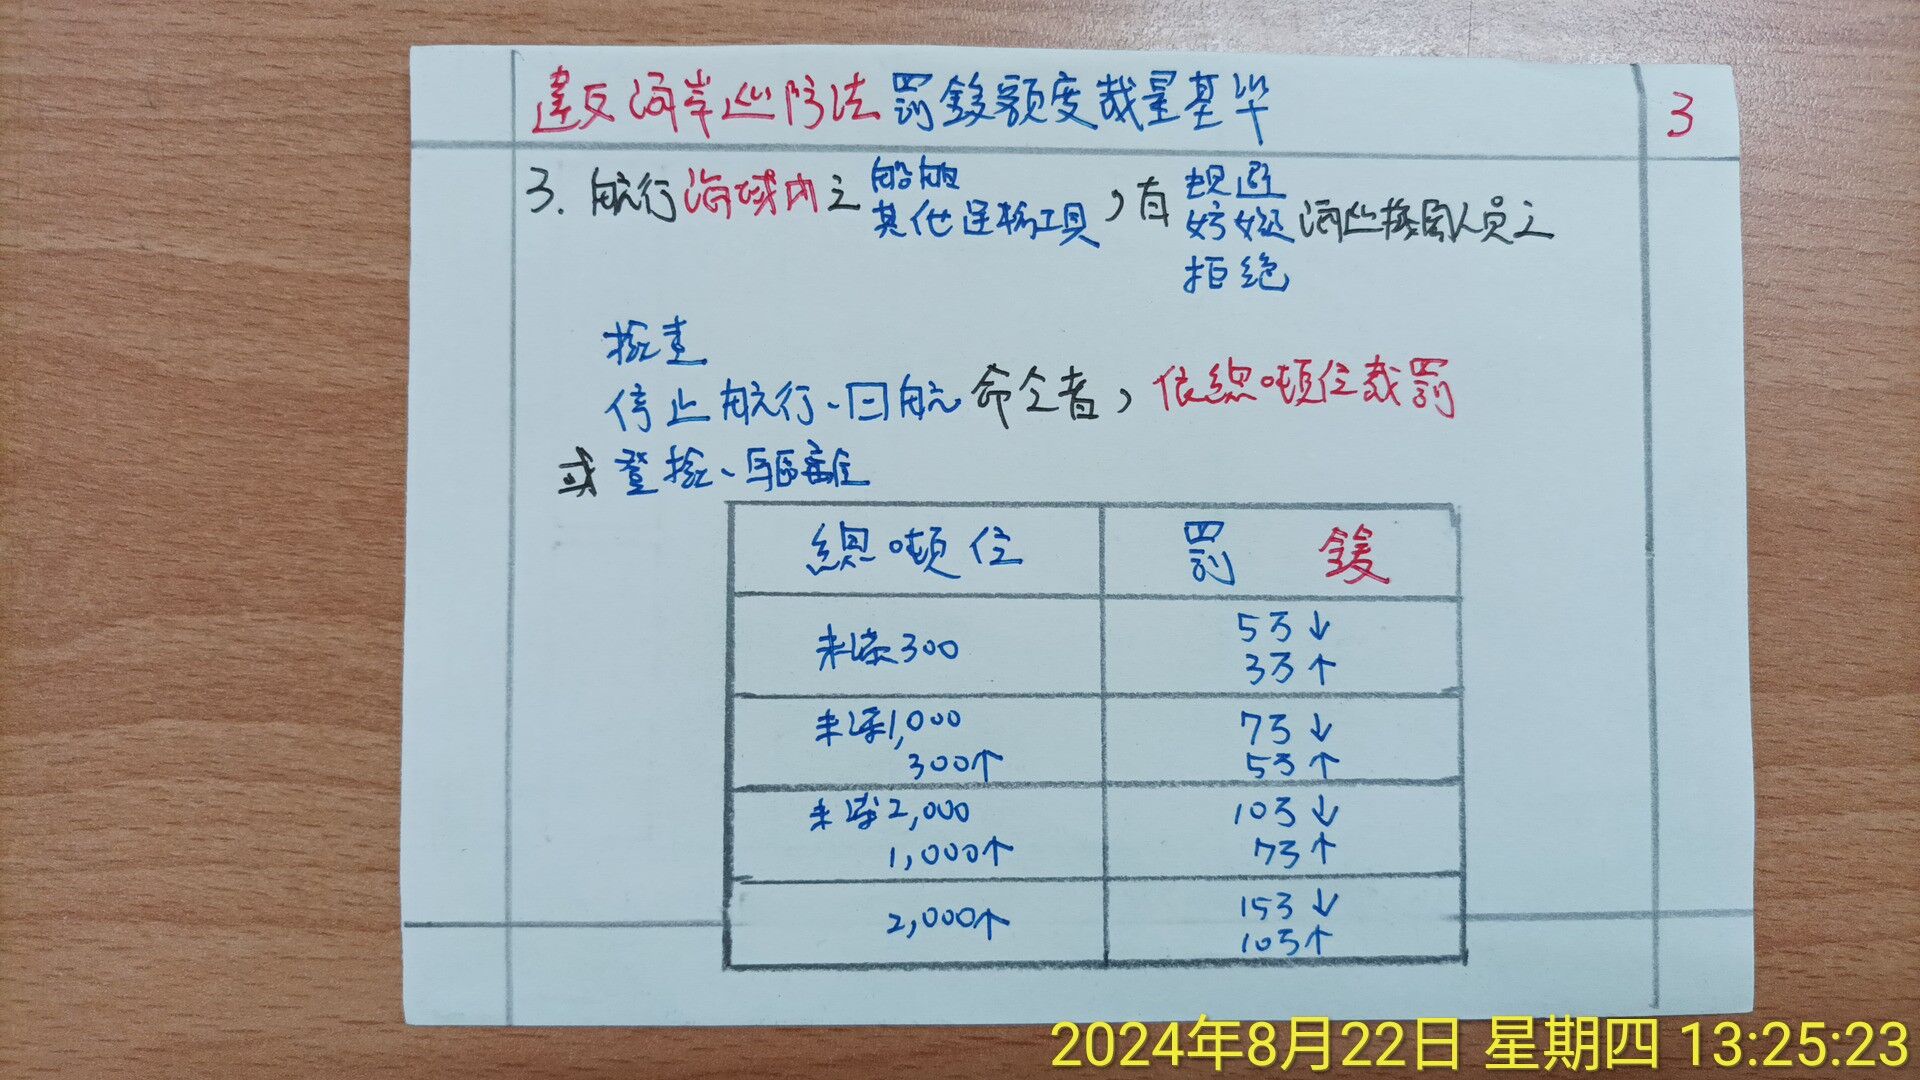 違反海岸巡防法罰鍰額度裁量基準
3
3. 航行海域內之船舶
其他運輸工具，有規避
妨礙
拒絕
海巡機關人員之
檢查
停止航行、回航命令者，依總噸位裁罰
或登檢、驅離
總噸位 罰 鍰
未滿300 5万↓
3万↑
未滿1,000 7万↓
300个 5万↑
未滿2,000 10万↓
1,000个 7万↑
2,000个 15万↓
10万↑
2024年8月22日 星期四 13:25:23